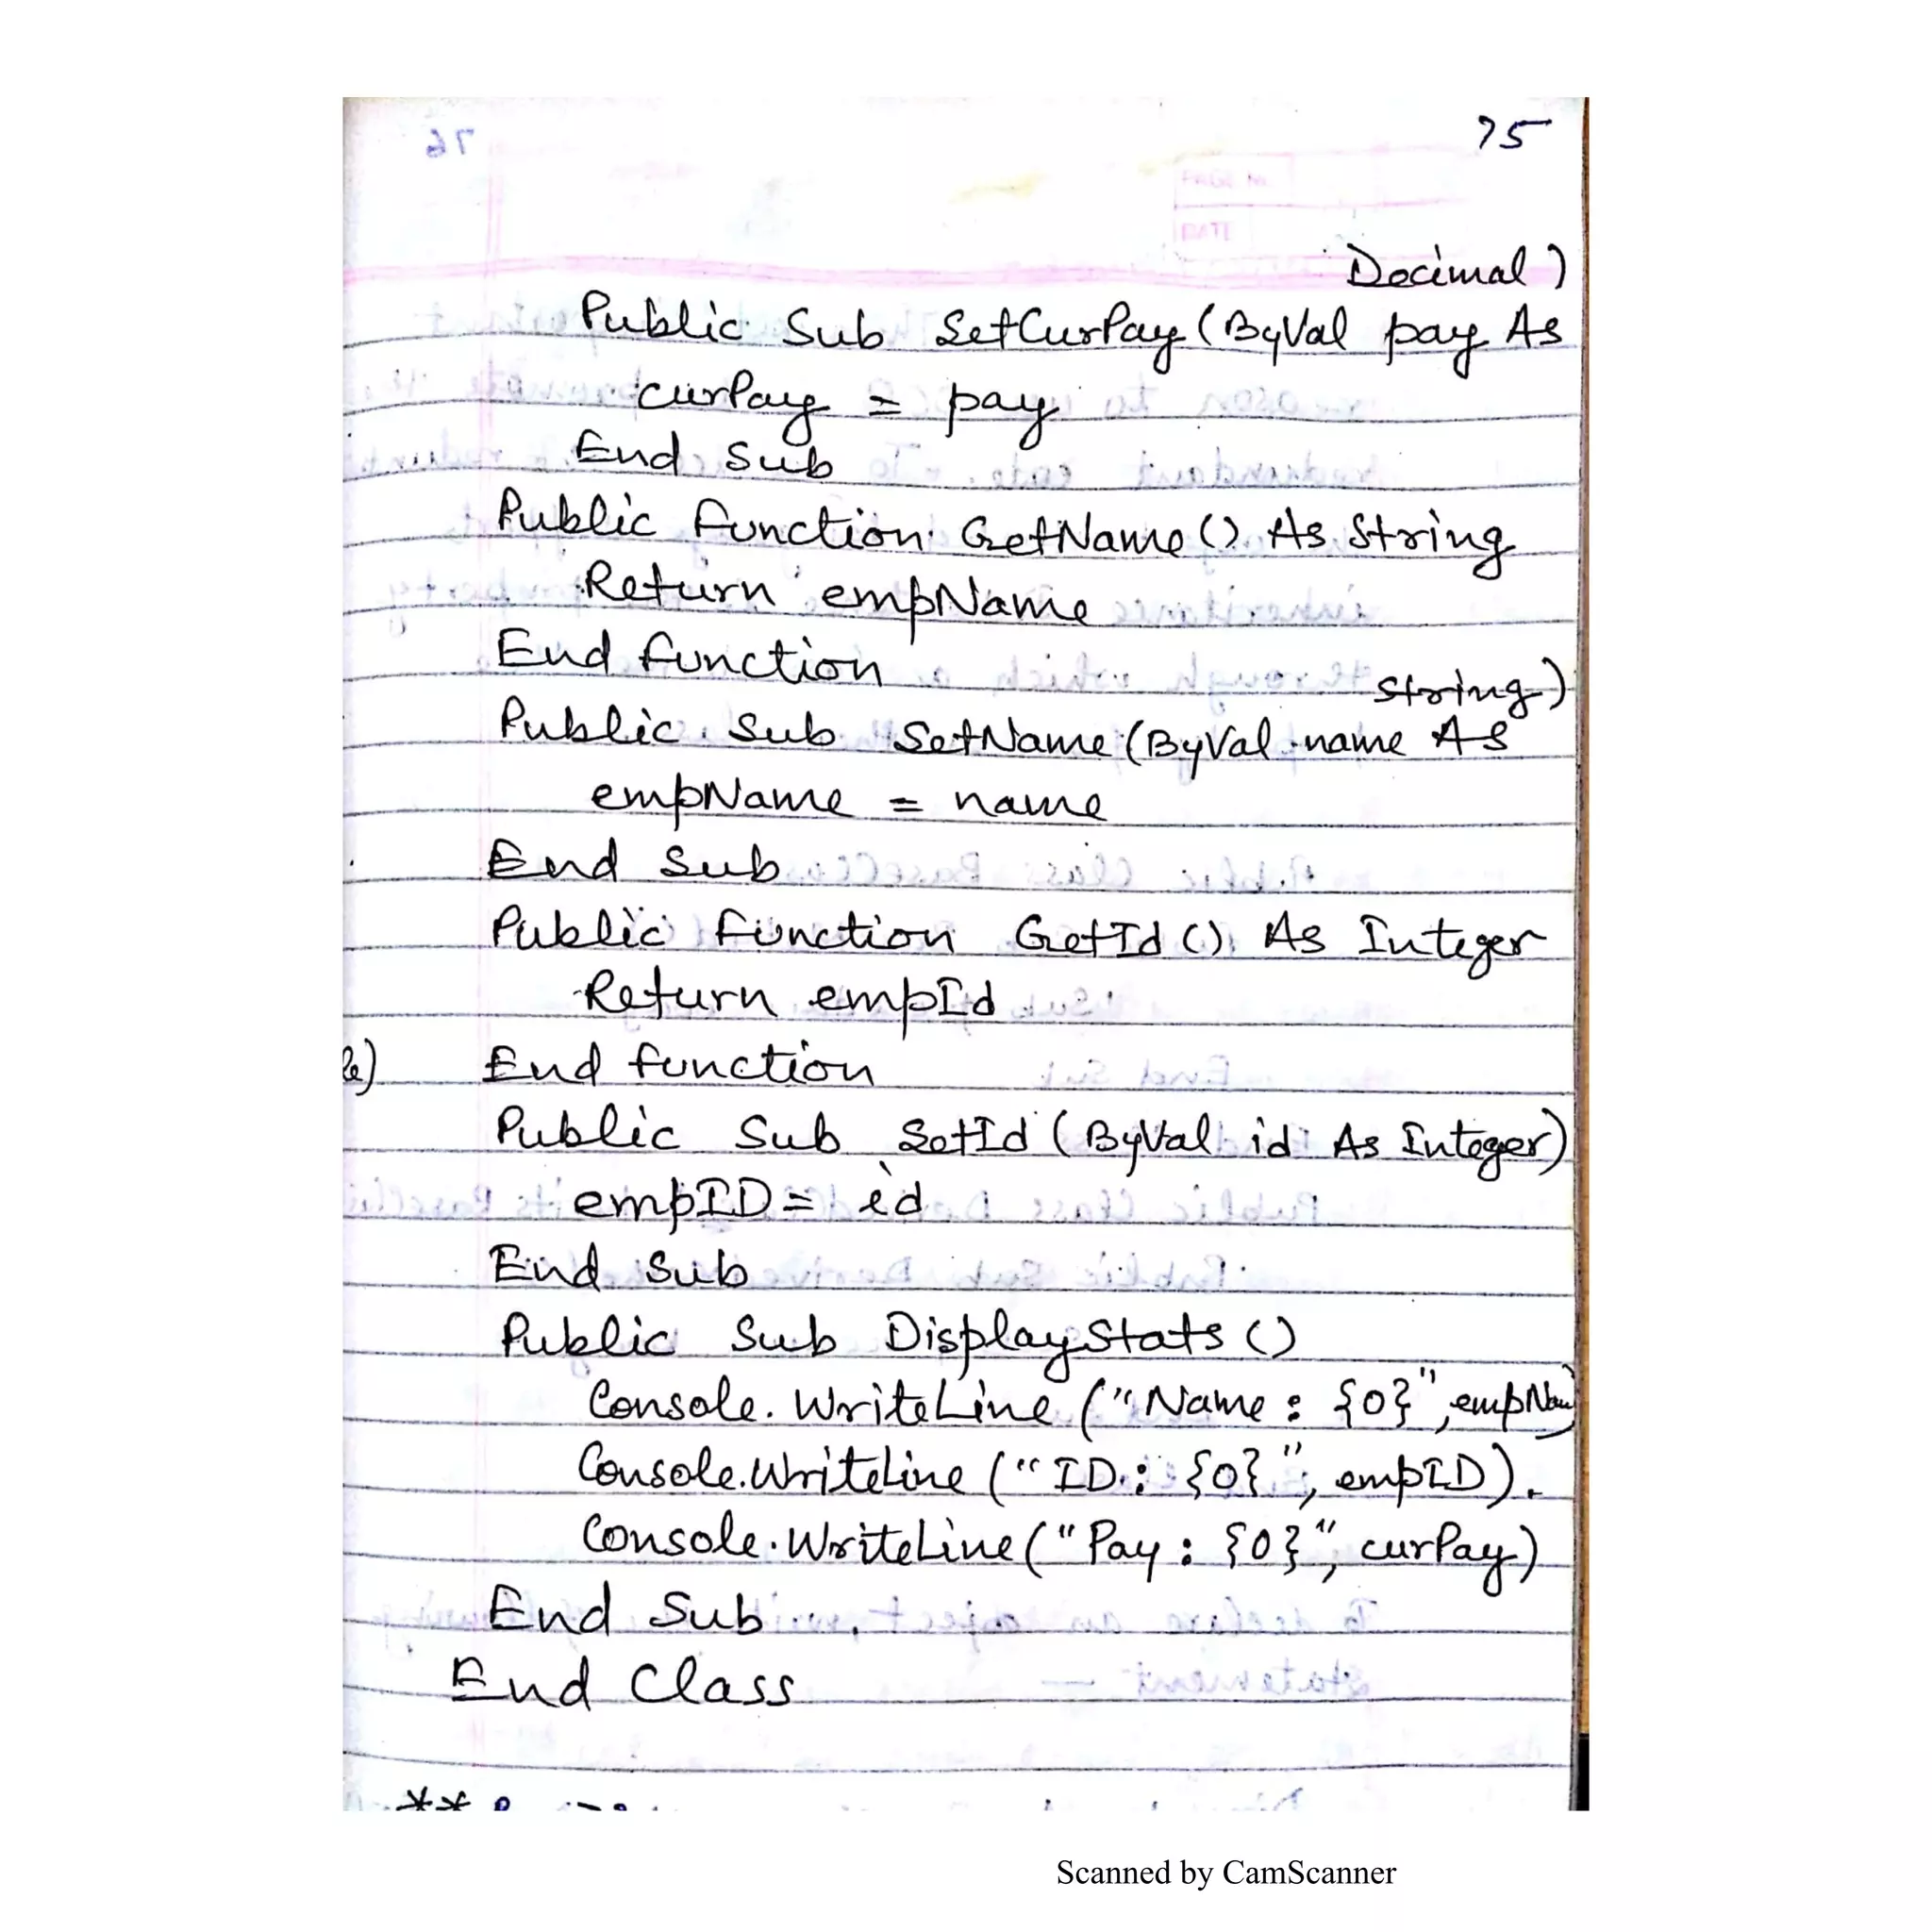 75
PAGE No.
DATE
Decimal)
Public Sub SetCurPay (ByVal pay As
curPay = pay
End Sub
Public Function GetName() As String
Return empName
End function
String)
Public Sub SetName (ByVal name As
empName = name
End Sub
Public Function GetId() As Integer
Return empId
End function
Public Sub SetId (ByVal id As Integer)
empID = id
End Sub
Public Sub DisplayStats ()
Console.WriteLine ("Name : {0}", empNam)
Console.WriteLine ("ID : {0}", empID).
Console.WriteLine ("Pay : {0}", curPay)
End Sub
End Class
**
Scanned by CamScanner